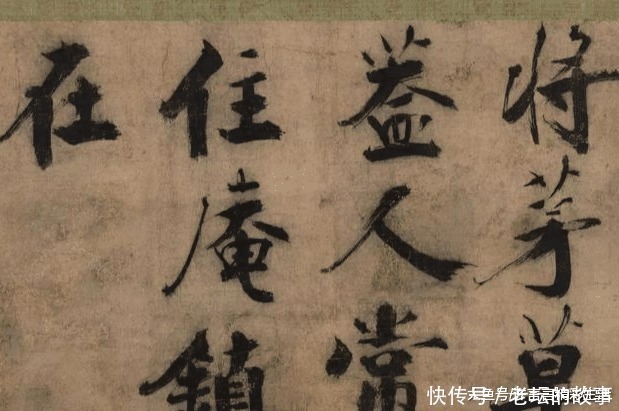 将茅草
蓋人常
住庵鎮
在
快传号/老坛的故事